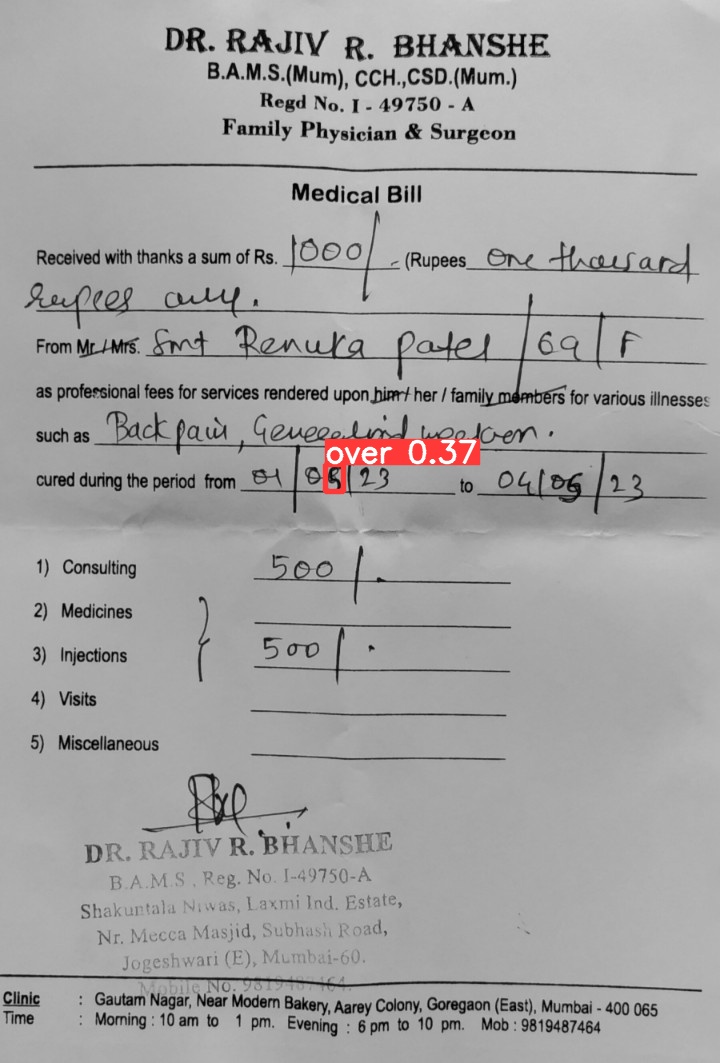 DR. RAJIV R. BHANSHE
B.A.M.S.(Mum), CCH.,CSD.(Mum.)
Regd No. I - 49750 - A
Family Physician & Surgeon
Medical Bill
Received with thanks a sum of Rs. 1000/- (Rupees one thousand
rupees only.
From Mr./Mrs. Smt Renuka Patel / 69 / F
as professional fees for services rendered upon him / her / family members for various illnesses
such as Back pain,
over 0.37
cured during the period from 01/05/23 to 04/05/23
1) Consulting 500/.
2) Medicines
3) Injections 500/.
4) Visits
5) Miscellaneous
DR. RAJIV R. BHANSHE
B.A.M.S , Reg. No. I-49750-A
Shakuntala Niwas, Laxmi Ind. Estate,
Nr. Mecca Masjid, Subhash Road,
Jogeshwari (E), Mumbai-60.
Mobile No. 9819487464.
Clinic : Gautam Nagar, Near Modern Bakery, Aarey Colony, Goregaon (East), Mumbai - 400 065
Time : Morning : 10 am to 1 pm. Evening : 6 pm to 10 pm. Mob : 9819487464